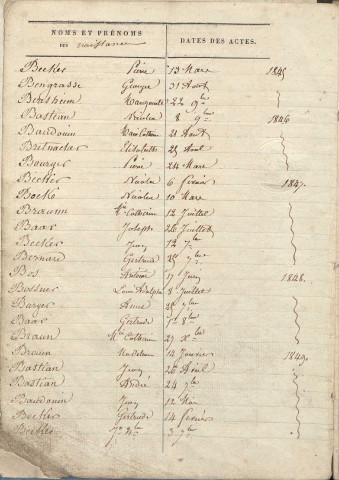 NOMS ET PRÉNOMS DATES DES ACTES.
DES naissances
Becker Pierre 13 Mars 1845
Bengrasse George 31 Août
Bertsheim Marguerite 22 9bre
Bastian Nicolas 8 9bre 1846
Baudouin Marie Catherine 21 Août
Britnacher Elisabeth 25 Avril
Bourger Pierre 24 Mars
Becker Nicolas 6 février 1847.
Bock Nicolas 10 Mars
Braunn Mie Catherine 12 Juillet
Baar Joseph 26 Juillet
Becker Jean 12 7bre
Bernard Gertrude 7bre
Bos Antoine 17 Juin 1848.
Bossner Louis Adolphe 8 Juillet
Barger Anne 7bre
Baar Gertrude 8bre
Braun Mie Catherine 27 Xbre
Braun Madeleine 12 Janvier 1849.
Bastian Jean 20 Avril
Bastian André 24
Baudouin Jean 12 Mai
Becker Gertrude 14 février
Becker 3